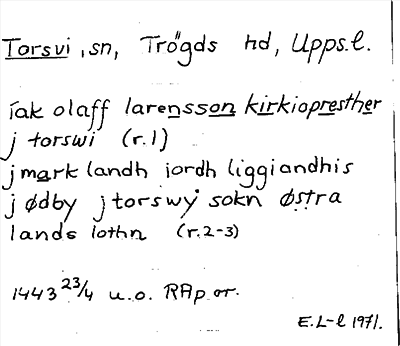 Torsvi, sn, Trögds hd, Upps.l.
iak olaff larensson kirkiopresther
j torswi (r.1)
j mark landh iordh liggiandhis
j ødby j torswy sokn østra
lands lothn (r.2-3)
1443 23/4 u.o. RAp or.
E.L-l 1971.